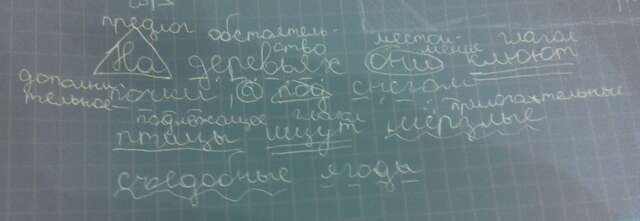 предлог обстоятель- местои- глагол
ство мение
На деревьях они клюют
дополни
тельное
почки, а под снегом
подлежащее глагол прилагательные
птицы ищут мёрзлые
съедобные ягоды